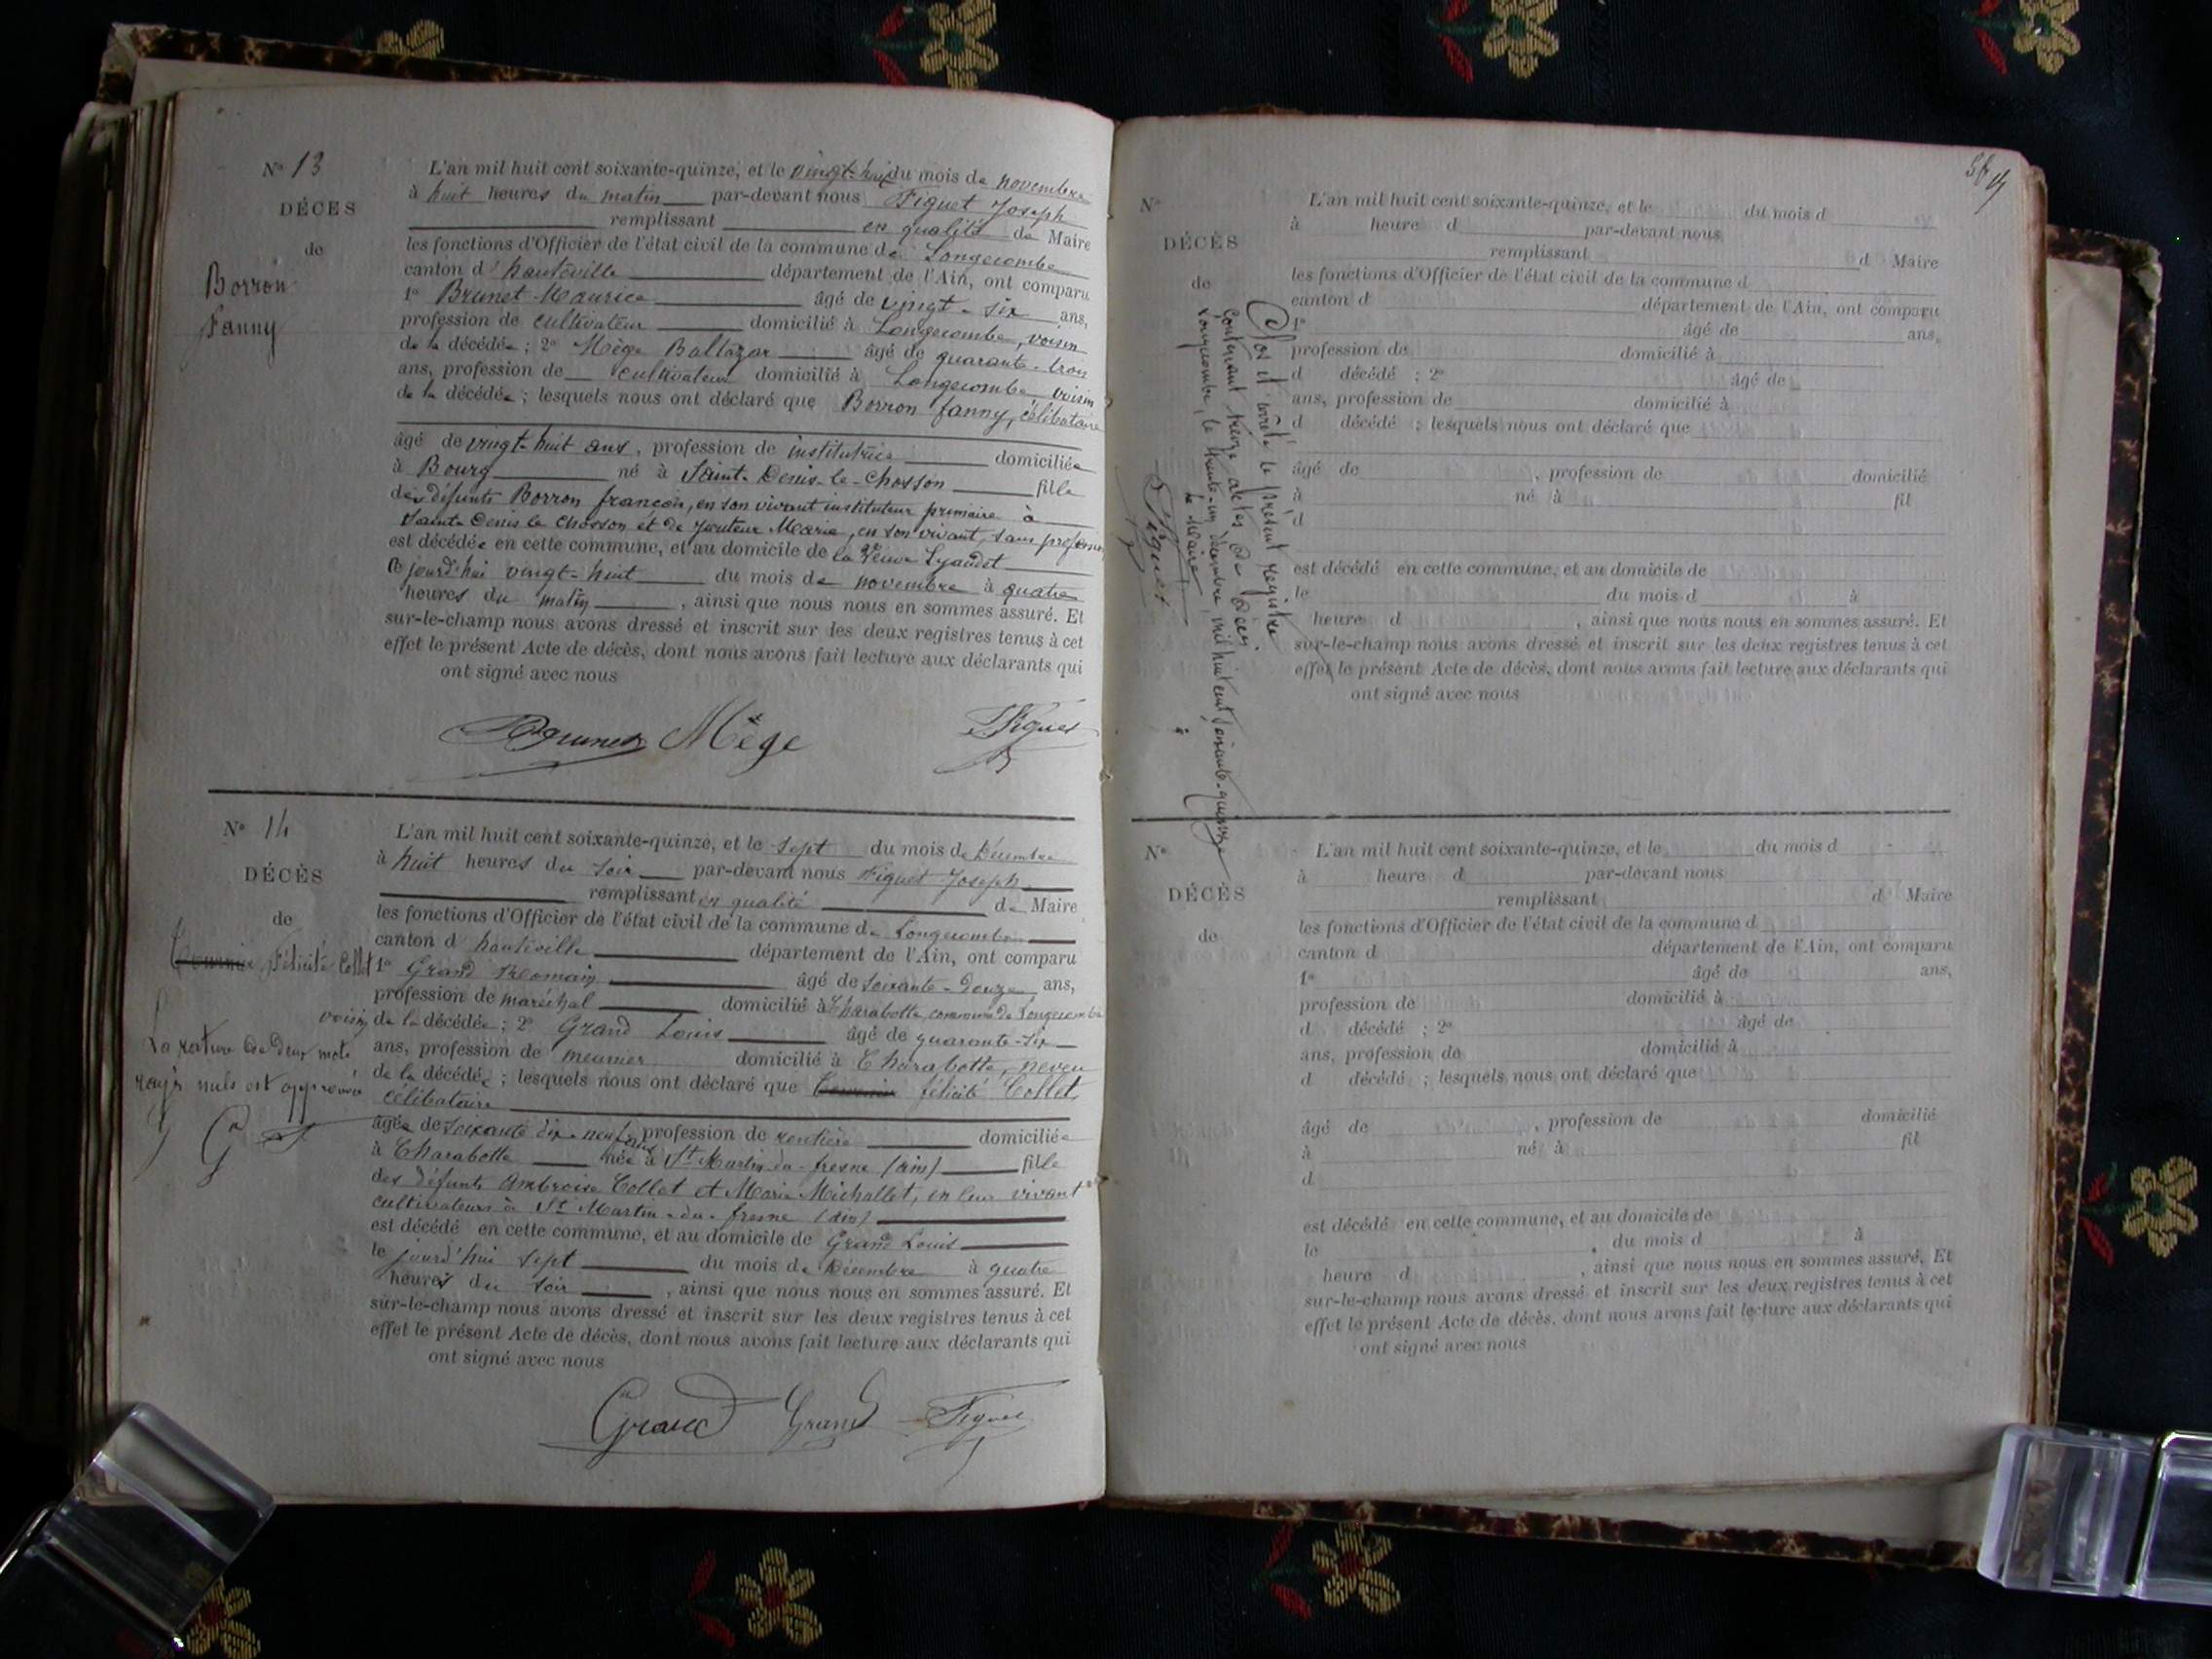 N° 13
DÉCES
de
Borron
Fanny
L'an mil huit cent soixante-quinze, et le vingt-huit du mois de novembre
à huit heures du matin par-devant nous Figuet Joseph
remplissant en qualité de Maire
les fonctions d'Officier de l'état civil de la commune de Longecombe
canton d'hauteville département de l'Ain, ont comparu
1° Brunet Maurice âgé de vingt-six ans,
profession de cultivateur domicilié à Longecombe, voisin
de la décédée ; 2° Mège Baltazar âgé de quarante-trois
ans, profession de cultivateur domicilié à Longecombe voisin
de la décédée ; lesquels nous ont déclaré que Borron fanny, célibataire
âgé de vingt-huit ans, profession de institutrice domiciliée
à Bourg né à Saint-Denis-le-Chosson fille
des défunts Borron françois, en son vivant instituteur primaire à
Saint-Denis le Chosson et de Marie, en son vivant, sans profession
est décédée en cette commune, et au domicile de la Veuve Lyaudet
Ce jourd'hui vingt-huit du mois de novembre à quatre
heures du matin, ainsi que nous nous en sommes assuré. Et
sur-le-champ nous avons dressé et inscrit sur les deux registres tenus à cet
effet le présent Acte de décès, dont nous avons fait lecture aux déclarants qui
ont signé avec nous
Brunet Mège Figuet
N° 14
DÉCÈS
de
Félicité Collet
La rature de deux mots
rayés nuls est approuvée
G F
L'an mil huit cent soixante-quinze, et le sept du mois de Décembre
à huit heures du soir par-devant nous Figuet Joseph
remplissant en qualité de Maire
les fonctions d'Officier de l'état civil de la commune de Longecombe
canton d'hauteville département de l'Ain, ont comparu
1° Grand Romain âgé de soixante-douze ans,
profession de maréchal domicilié à Charabotte, commune de Longecombe
voisin de la décédée ; 2° Grand Louis âgé de quarante-six
ans, profession de meunier domicilié à Charabotte, neveu
de la décédée ; lesquels nous ont déclaré que félicité Collet,
célibataire
âgée de soixante dix-neuf ans, profession de rentière domiciliée
à Charabotte née à St Martin-du-fresne (ain) fille
des défunts Ambroise Collet et Marie Michallet, en leur vivant
cultivateurs à St Martin-du-fresne (ain)
est décédé en cette commune, et au domicile de Grand Louis
le jourd'hui sept du mois de Décembre à quatre
heures du soir, ainsi que nous nous en sommes assuré. Et
sur-le-champ nous avons dressé et inscrit sur les deux registres tenus à cet
effet le présent Acte de décès, dont nous avons fait lecture aux déclarants qui
ont signé avec nous
Grand Grand Figuet
N°
DÉCÈS
de
Clos et arrêté le présent registre
contenant treize actes de décès.
Longecombe, le trente-un décembre, mil huit cent soixante-quinze
Le Maire
Figuet
L'an mil huit cent soixante-quinze, et le du mois d
à heure d par-devant nous
remplissant d Maire
les fonctions d'Officier de l'état civil de la commune d
canton d département de l'Ain, ont comparu
1° âgé de ans,
profession de domicilié à
d décédé ; 2° âgé de
ans, profession de domicilié à
d décédé ; lesquels nous ont déclaré que
âgé de , profession de domicilié
à né à fil
d
est décédé en cette commune, et au domicile de
le du mois d à
heure d , ainsi que nous nous en sommes assuré. Et
sur-le-champ nous avons dressé et inscrit sur les deux registres tenus à cet
effet le présent Acte de décès, dont nous avons fait lecture aux déclarants qui
ont signé avec nous
N°
DÉCÈS
de
L'an mil huit cent soixante-quinze, et le du mois d
à heure d par-devant nous
remplissant d Maire
les fonctions d'Officier de l'état civil de la commune d
canton d département de l'Ain, ont comparu
1° âgé de ans,
profession de domicilié à
d décédé ; 2° âgé de
ans, profession de domicilié à
d décédé ; lesquels nous ont déclaré que
âgé de , profession de domicilié
à né à fil
d
est décédé en cette commune, et au domicile de
le du mois d à
heure d , ainsi que nous nous en sommes assuré. Et
sur-le-champ nous avons dressé et inscrit sur les deux registres tenus à cet
effet le présent Acte de décès, dont nous avons fait lecture aux déclarants qui
ont signé avec nous